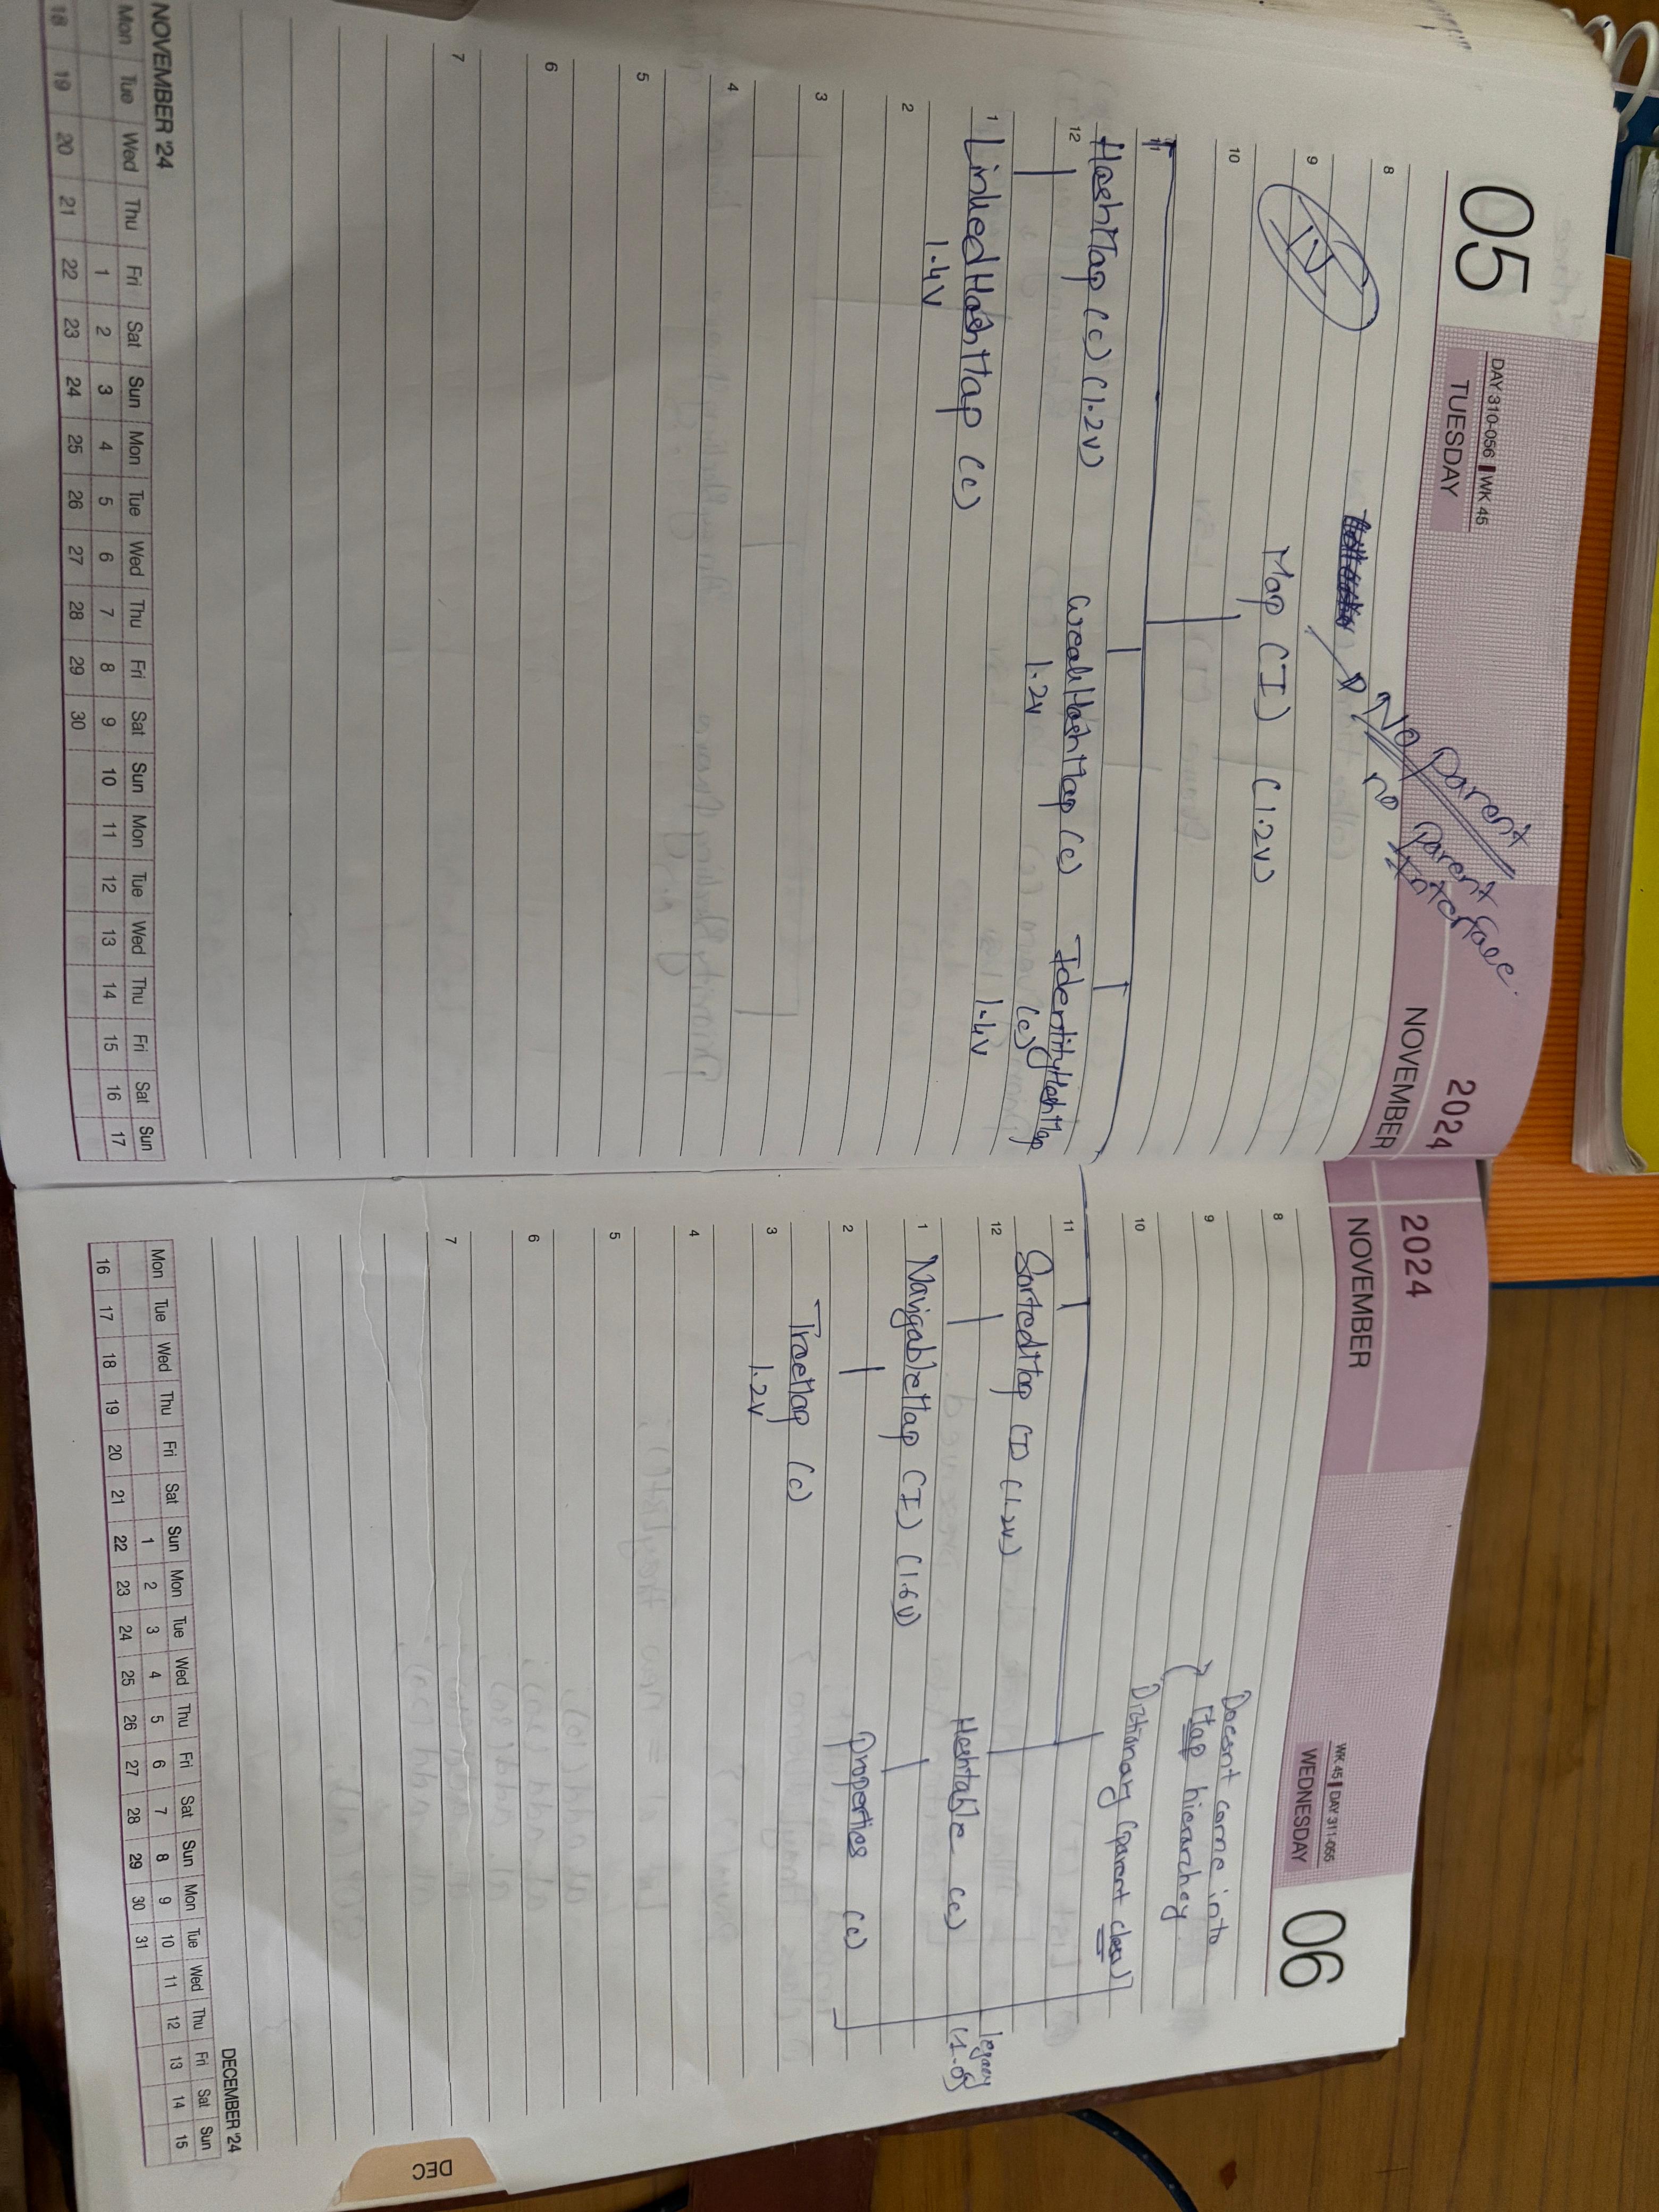 05
DAY 310-056 WK 45
TUESDAY
2024
NOVEMBER
No parent
no parent
Interface.
8
9
IV
10
Map (I) (1.2V)
11
12
HashMap (c) (1.2v)
WeakHashMap (c)
1.2v
IdentityHashMap
(c)
1.4v
1
LinkedHashMap (c)
1.4V
2
3
4
5
6
7
NOVEMBER '24
Mon Tue Wed Thu Fri Sat Sun Mon Tue Wed Thu Fri Sat Sun Mon Tue Wed Thu Fri Sat Sun
1 2 3 4 5 6 7 8 9 10 11 12 13 14 15 16 17
18 19 20 21 22 23 24 25 26 27 28 29 30
2024
NOVEMBER
WK 45 DAY 311-055
WEDNESDAY
06
8
Doesnt come into
9
Map hierarchey
10
Dictionary (parent class)
11
SortedMap (I) (1.2v)
12
Hashtable (c)
legacy
(1.0)
1
NavigableMap (I) (1.6V)
2
Properties (c)
3
TreeMap (c)
1.2v
4
5
6
7
DECEMBER '24
Mon Tue Wed Thu Fri Sat Sun Mon Tue Wed Thu Fri Sat Sun Mon Tue Wed Thu Fri Sat Sun
1 2 3 4 5 6 7 8 9 10 11 12 13 14 15
16 17 18 19 20 21 22 23 24 25 26 27 28 29 30 31
DEC